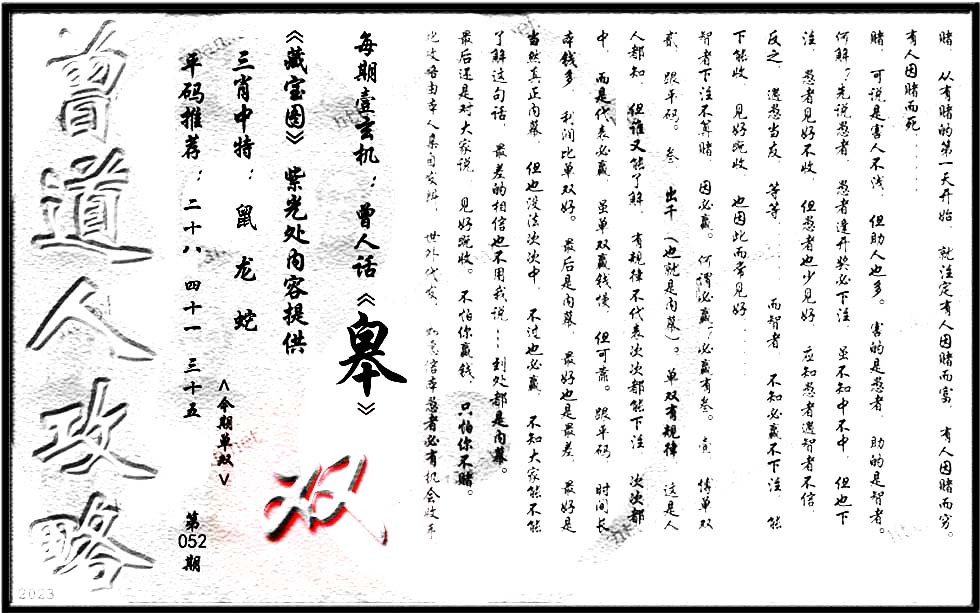 赌 从有赌的第一天开始 就注定有人因赌而富 有人因赌而穷。
有人因赌而死……
赌 可说是害人不浅 但助人也多。害的是愚者 助的是智者。
何解?先说愚者 愚者逢开奖必下注 虽不知中不中 但也下
注 愚者见好不收 但愚者也少见好 应知愚者遇智者不信
反之 遇愚当友 等等…… 而智者 不知必赢不下注 能
下能收 见好就收 也因此而常见好……
智者下注不算赌 因必赢。何谓必赢?必赢有叁。壹 博单双
贰 跟平码。叁 出千(也就是内幕)。单双有规律 这是人
人都知 但谁又能了解 有规律不代表次次都能下注 次次都
中 而是代表必赢 虽单双赢钱慢 但可靠。跟平码 时间长
本钱多 利润比单双好。最后是内幕 最好也是最差 最好是
当然真正内幕 但也没法次次中 不过也必赢 不知大家能不能
了解这句话 最差的相信也不用我说……到处都是内幕。
最后还是对大家说 见好就收。不怕你赢钱、只怕你不赌。
每期壹玄机:曾人话《皋》
《藏宝图》紫光处内容提供
三肖中特: 鼠 龙 蛇
平码推荐:二十八 四十一 三十五
<今期单双>
双
第052期
曾道人攻略
2023